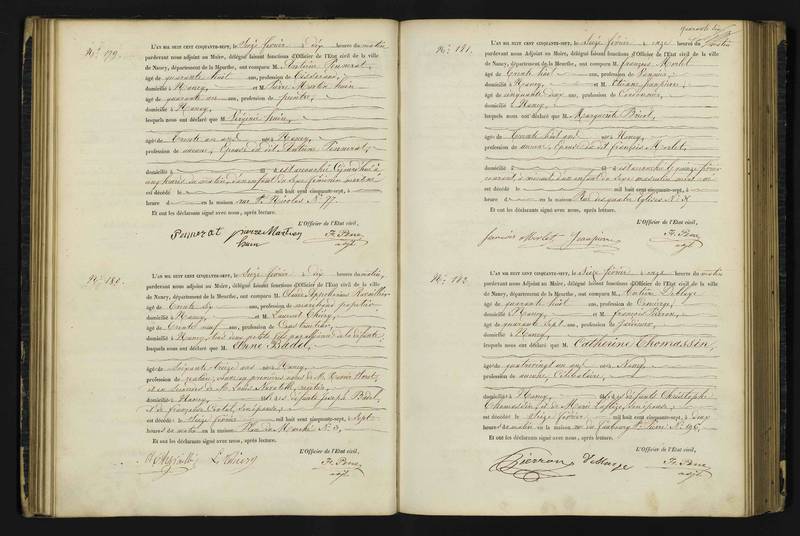 No. 179.
L'AN MIL HUIT CENT CINQUANTE-SEPT, le Seize février à dix heures du matin
pardevant nous adjoint au Maire, délégué faisant fonctions d'Officier de l'Etat civil de la ville
de Nancy, département de la Meurthe, ont comparu M. Antoine Pommerat,
âgé de quarante huit ans, profession de
domicilié à Nancy, et M. Pierre Martin
âgé de quarante ans, profession de peintre,
domicilié à Nancy,
lesquels nous ont déclaré que M. Virginie
âgée de Trente un ans née Nancy,
profession de aucune, Epouse du dit Antoine Pommerat,
domicilié à est accouchée Cejourd'hui à
une heure du matin d'un enfant du sexe féminin mort né
est décédé le mil huit cent cinquante-sept, à
heure en la maison rue St Nicolas No 77.
Et ont les déclarants signé avec nous, après lecture.
L'Officier de l'Etat civil,
Pommerat pierre Martin
No. 180.
L'AN MIL HUIT CENT CINQUANTE-SEPT, le Seize février à dix heures du matin,
pardevant nous adjoint au Maire, délégué faisant fonctions d'Officier de l'Etat civil de la ville
de Nancy, département de la Meurthe, ont comparu M. Claude
âgé de Trente six ans, profession de marchand papetier,
domicilié à Nancy, et M. Laurent Thiéry,
âgé de Trente neuf ans, profession de
domicilié à Nancy, tous deux petits fils par alliance de la défunte,
lesquels nous ont déclaré que M. Anne Badel,
âgée de Soixante seize ans née Nancy,
profession de rentière, veuve en premières noces de M.
et en secondes de M. Louis
domiciliée à Nancy, fille des défunts Joseph Badel,
et de Françoise
est décédée le Seize février mil huit cent cinquante-sept, à Sept
heures du matin en la maison Place du Marché No 3,
Et ont les déclarants signé avec nous, après lecture.
L'Officier de l'Etat civil,
L. Thiéry
No. 181.
L'AN MIL HUIT CENT CINQUANTE-SEPT, le Seize février à onze heures du matin
pardevant nous Adjoint au Maire, délégué faisant fonctions d'Officier de l'Etat civil de la ville
de Nancy, département de la Meurthe, ont comparu M. françois Morlot
âgé de Trente huit ans, profession de Vannier,
domicilié à Nancy, et M. Etienne
âgé de cinquante deux ans, profession de Cordonnier,
domicilié à Nancy,
lesquels nous ont déclaré que M. Marguerite
âgée de Trente huit ans née Nancy,
profession de aucune Epouse du dit françois Morlot,
domicilié à est accouchée le quinze février
courant, à d'un enfant du sexe masculin mort né
est décédé le mil huit cent cinquante-sept, à
heure en la maison Rue des quatre Eglises No
Et ont les déclarants signé avec nous, après lecture.
L'Officier de l'Etat civil,
françois Morlot
No. 182.
L'AN MIL HUIT CENT CINQUANTE-SEPT, le Seize février à onze heures du matin
pardevant nous Adjoint au Maire, délégué faisant fonctions d'Officier de l'Etat civil de la ville
de Nancy, département de la Meurthe, ont comparu M. Antoine
âgé de quarante huit ans, profession de Concierge,
domicilié à Nancy, et M. françois Pierron,
âgé de quarante sept ans, profession de
domicilié à Nancy,
lesquels nous ont déclaré que M. Catherine Thomassin,
âgée de quatrevingt un ans née Nancy,
profession de aucune, Célibataire,
domiciliée à Nancy, fille des défunts Christophe
Thomassin, et de Marie
est décédée le Seize février mil huit cent cinquante-sept, à deux
heures du matin en la maison rue du faubourg St Pierre No
Et ont les déclarants signé avec nous, après lecture.
L'Officier de l'Etat civil,
Pierron